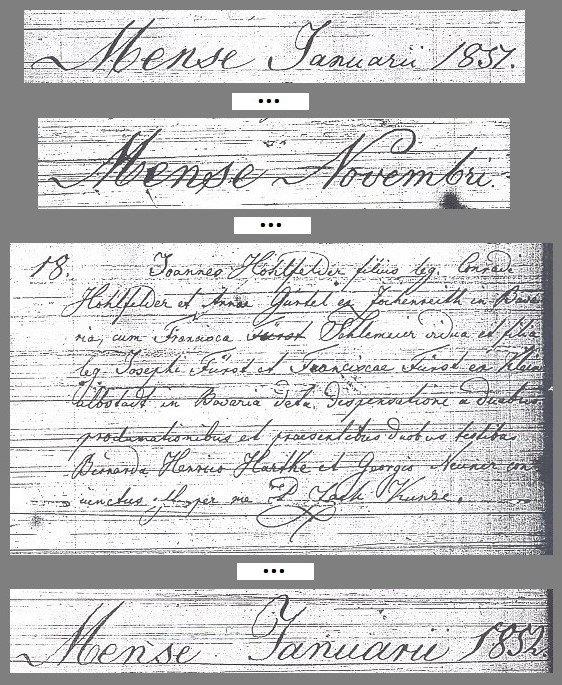 Mense Januarii 1851.
...
Mense Novembri.
...
18. Joannes Hohlfelder filius leg. Conradi
Hohlfelder et Annae Gürtel ex Jochenreith in Bava
ria, cum Francisca Fürst Schlemeier vidua et filia
leg Josephi Fürst et Franciscae Fürst ex Klein
albstadt in Bavaria data dispensatione a duabus
proclamationibus et praesentibus duobus testibus
Bernardo Henrico Harthe et Georgio Neuner con
iunctus est per me Ed Zach Kunze.
...
Mense Januarii 1852.